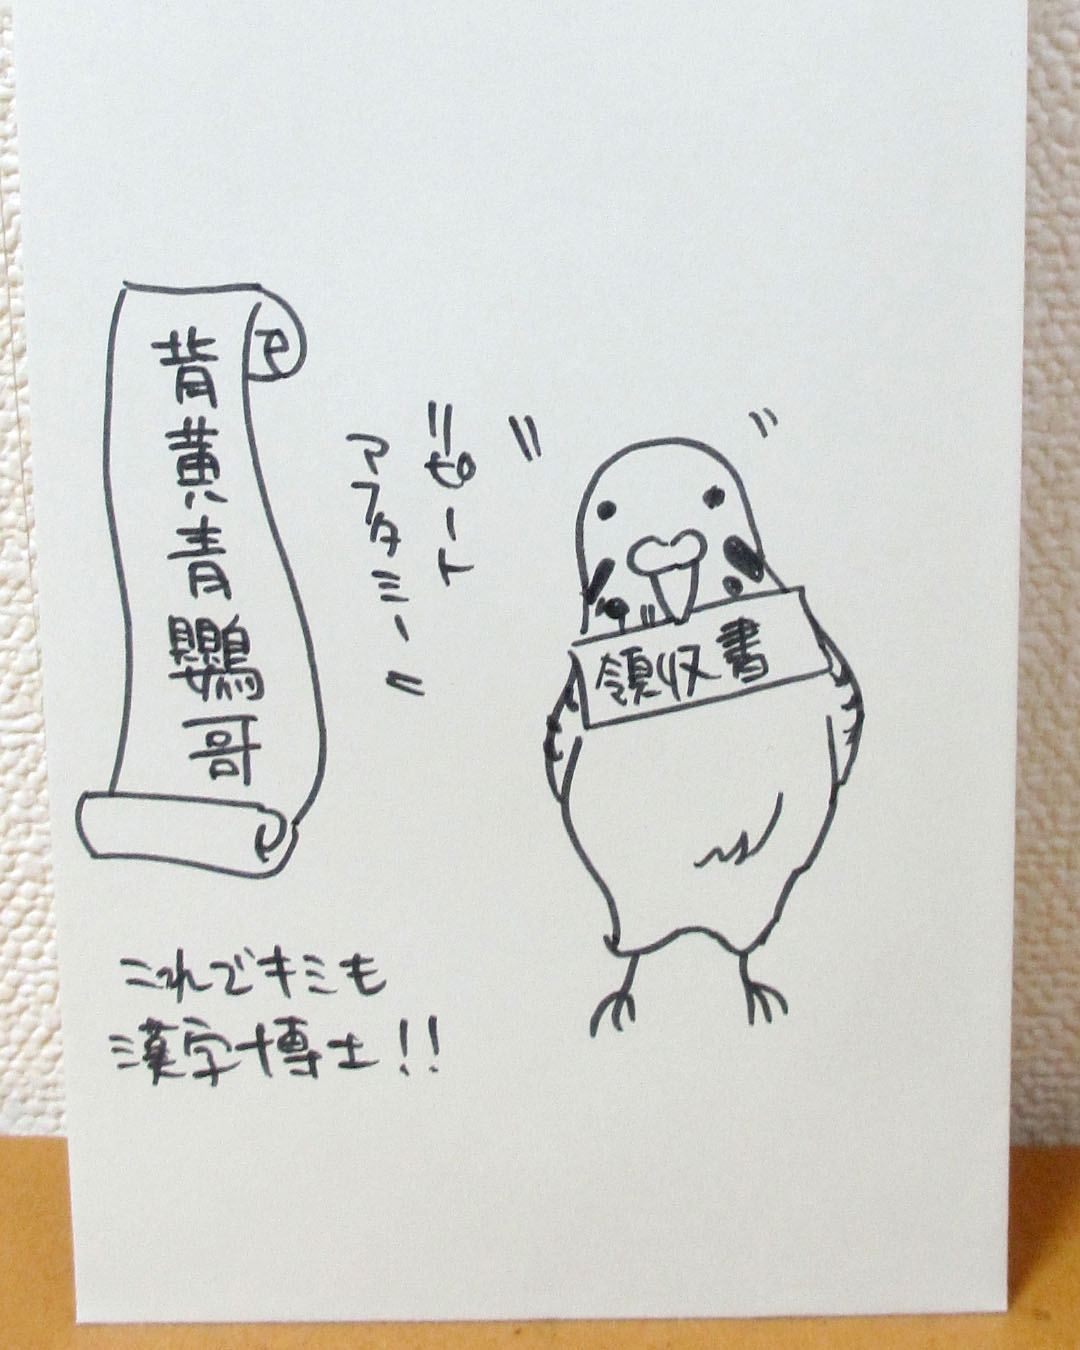 領収書
ビート
アフタミー
背黄青鸚哥
これでキミも
漢字博士!!